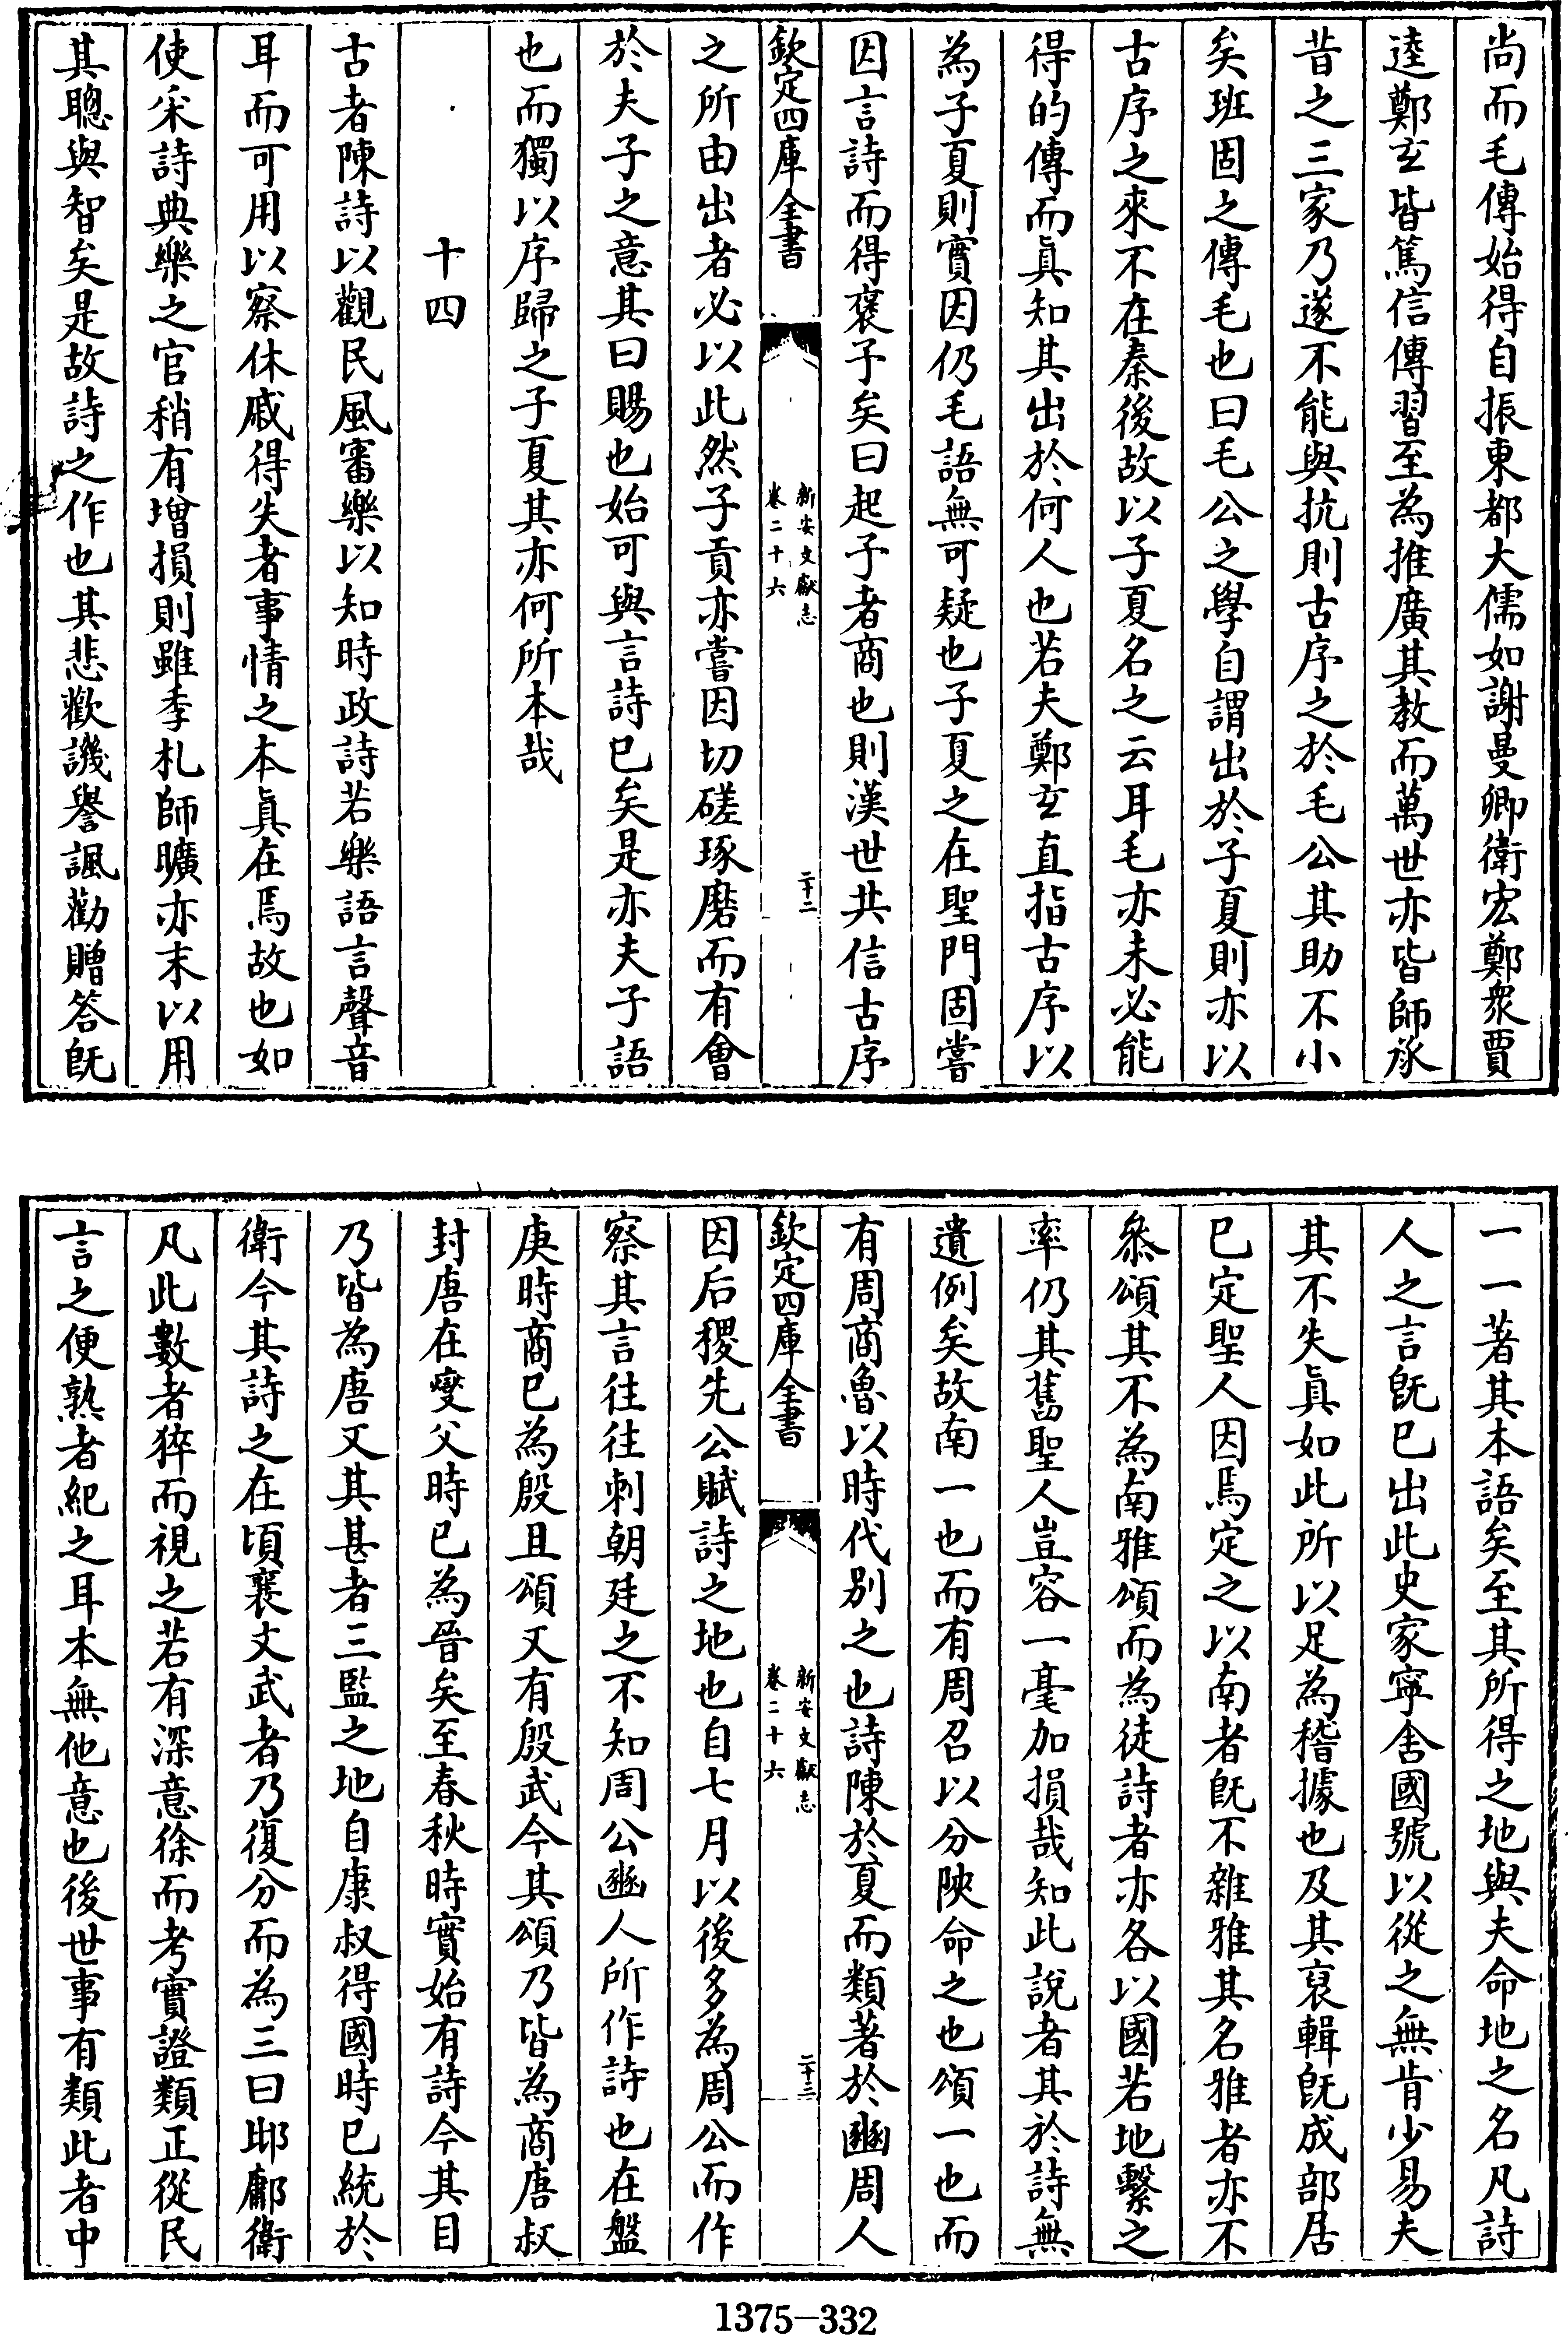 尚而毛傳始得自振東都大儒如謝曼卿衛宏鄭衆賈
逵鄭玄皆篤信傳習至為推廣其教而萬世亦皆師承
昔之三家乃遂不能與抗則古序之於毛公其助不小
矣班固之傳毛也曰毛公之學自謂出於子夏則亦以
古序之來不在秦後故以子夏名之云耳毛亦未必能
得的傳而眞知其出於何人也若夫鄭玄直指古序以
為子夏則實因仍毛語無可疑也子夏之在聖門固嘗
因言詩而得褒予矣曰起予者商也則漢世共信古序
欽定四庫全書
新安文獻志
卷二十六
二十二
之所由出者必以此然子貢亦嘗因切磋琢磨而有會
於夫子之意其曰賜也始可與言詩已矣是亦夫子語
也而獨以序歸之子夏其亦何所本哉
十四
古者陳詩以觀民風審樂以知時政詩若樂語言聲音
耳而可用以察休戚得失者事情之本眞在焉故也如
使采詩典樂之官稍有增損則雖季札師曠亦末以用
其聰與智矣是故詩之作也其悲歡譏譽諷勸贈答旣
一一著其本語矣至其所得之地與夫命地之名凡詩
人之言旣已出此史家寧舍國號以從之無肯少易夫
其不失眞如此所以足為稽據也及其裒輯旣成部居
已定聖人因焉定之以南者旣不雜雅其名雅者亦不
叅頌其不為南雅頌而為徒詩者亦各以國若地繫之
率仍其舊聖人豈容一毫加損哉知此説者其於詩無
遺例矣故南一也而有周召以分陜命之也頌一也而
有周商魯以時代别之也詩陳於夏而類著於豳周人
欽定四庫全書
新安文獻志
卷二十六
二十三
因后稷先公賦詩之地也自七月以後多為周公而作
察其言往往刺朝廷之不知周公豳人所作詩也在盤
庚時商已為殷且頌又有殷武今其頌乃皆為商唐叔
封唐在燮父時已為晉矣至春秋時實始有詩今其目
乃皆為唐又其甚者三監之地自康叔得國時已統於
衛今其詩之在頃襄文武者乃復分而為三曰邶鄘衛
凡此數者猝而視之若有深意徐而考實證類正從民
言之便熟者紀之耳本無他意也後世事有類此者中
1375-332